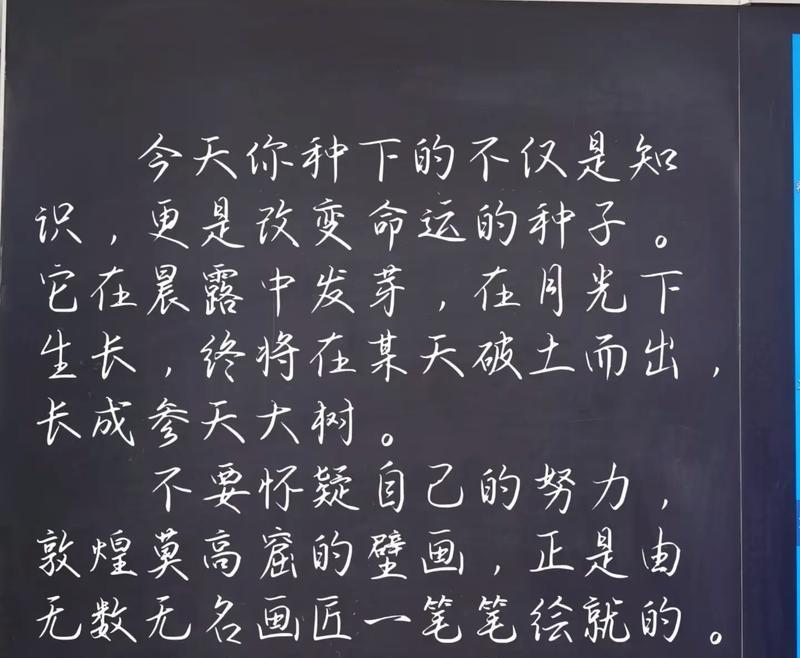 今天你种下的不仅是知
识，更是改变命运的种子。
它在晨露中发芽，在月光下
生长，终将在某天破土而出，
长成参天大树。
不要怀疑自己的努力，
敦煌莫高窟的壁画，正是由
无数无名画匠一笔笔绘就的。